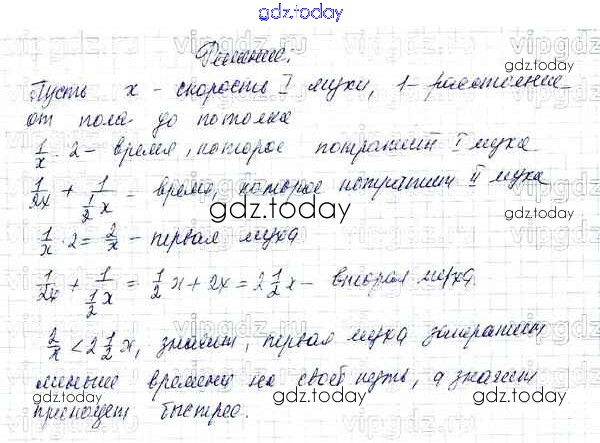 gdz.today
Решение.
Пусть x - скорость I мухи, 1 - расстояние
от пола до потолка
1/x · 2 - время, которое потратит I муха
1/2x + 1/(1/2 x) - время, которое потратит II муха
gdz.today
1/x · 2 = 2/x - первая муха
1/2x + 1/(1/2 x) = 1/2 x + 2x = 2 1/2 x - вторая муха.
2/x < 2 1/2 x, значит, первая муха затратит
меньше времени на свой путь, а значит
приползет быстрее.
gdz.today